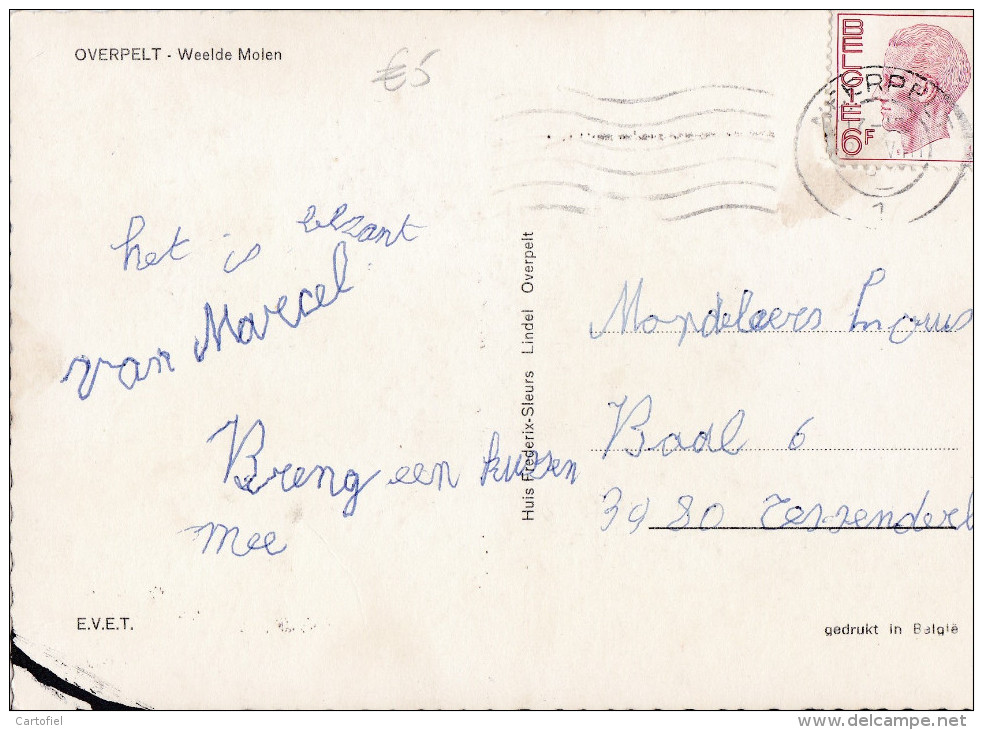 OVERPELT - Weelde Molen
€5
BELGIE 6F
het is
van Marcel
Breng een kussen
Mee
Huis Frederix-Sleurs Lindel Overpelt
Baal 6
3980 Tessenderl
E.V.E.T.
gedrukt in België
Cartofiel
www.delcampe.net